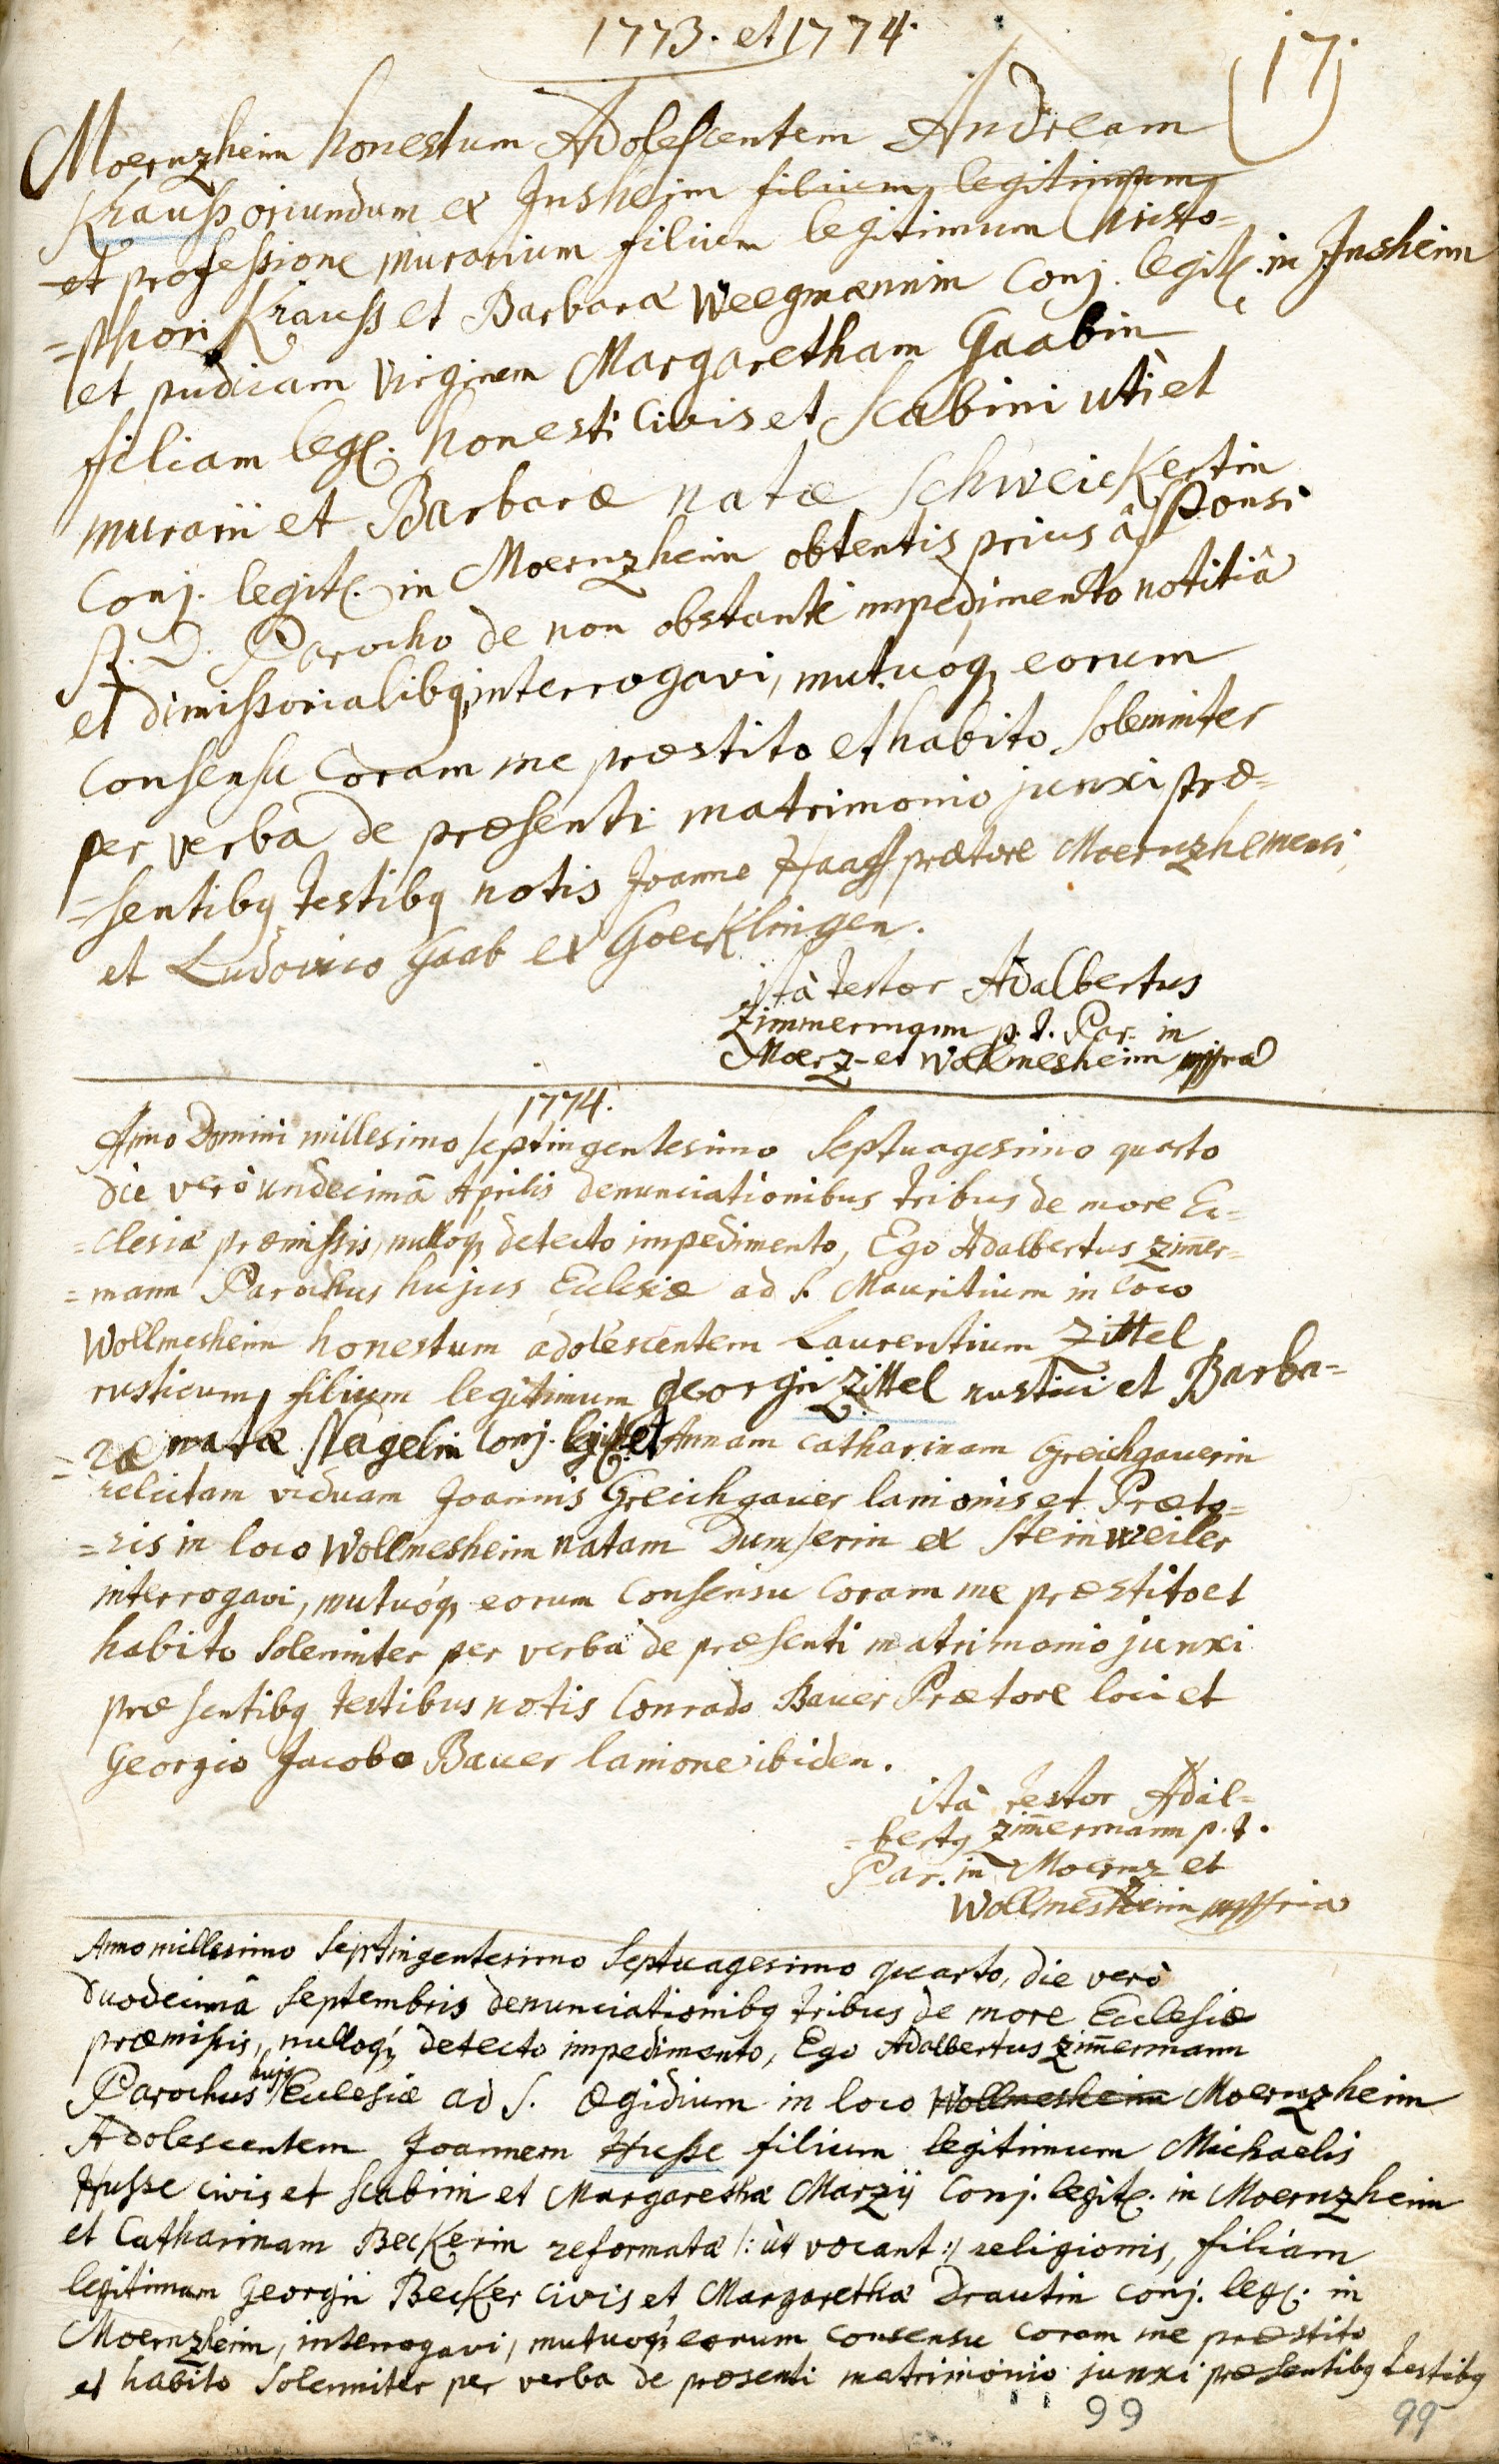 1773. et 1774.
17.
Moernzheim honestum Adolescentem Andream
Krauss oriundum ex Insheim filium legitimum
et professione murarium filium legitimum Christo=
=phori Krauss et Barbarae Weegmannin Conj. legit. in Insheim
et pudicam virginem Margaretham Gaabin
filiam leg. honesti Civis et Scabini uti et
murarii et Barbarae natae Schweickertin
Conj. legit. in Moernzheim obtentis prius à sponsi
R. D. Parocho de non obstante impedimento notitiâ
et dimissorialibq interrogavi, mutuóq eorum
Consensu Coram me praestito et habito solemniter
per verba de praesenti matrimonio junxi prae=
=sentibq testibq notis Joanne Haass praetore Moernzhemensi,
et Ludovico Gaab ex Goecklingen.
ità testor Adalbertus
Zimmermann p. t. Par. in
Moerz- et Wollmesheim mppra
1774.
Anno Domini millesimo septingentesimo septuagesimo quarto
die verò undecimâ Aprilis denunciationibus tribus de more Ec=
=clesiae praemissis, nulloq detecto impedimento, Ego Adalbertus Zim̄er=
=mann Parochus hujus Ecclesiae ad S. Mauritium in loco
Wollmesheim honestum adolescentem Laurentium Zittel
rusticum, filium legitimum Georgii Zittel rustici et Barba=
=rae natae Nagelin Conj. legit. et Annam Catharinam Greichgauerin
relictam viduam Joannis Greichgauer lanionis et Praeto=
=ris in loco Wollmesheim natam Dumserin ex Steinweiler
interrogavi, mutuóq eorum Consensu Coram me praestito et
habito solemniter per verba de praesenti matrimonio junxi
praesentibq testibus notis Conrado Bauer Praetore loci et
Georgio Jacobo Bauer lanione ibidem.
ità testor Adal=
=bertq Zim̄ermann p. t.
Par. in Moernz et
Wollmesheim mppria
Anno millesimo septingentesimo septuagesimo quarto, die verò
duodecimâ Septembris denunciationibq tribus de more Ecclesiae
praemissis, nulloq detecto impedimento, Ego Adalbertus Zim̄ermann
Parochus hujq Ecclesiae ad S. Aegidium in loco Wollmesheim Moernzheim
Adolescentem Joannem Husse filium legitimum Michaelis
Husse civis et scabini et Margarethae Marzii Conj. legit. in Moernzheim
et Catharinam Beckerin reformatae /: ùt vocant :/ religionis, filiam
legitimam Georgii Becker Civis et Margarethae Drautin conj. leg. in
Moernzheim, interrogavi, mutuoq eorum consensu coram me praestito
et habito solemniter per verba de praesenti matrimonio junxi praesentibq testibq
99
99